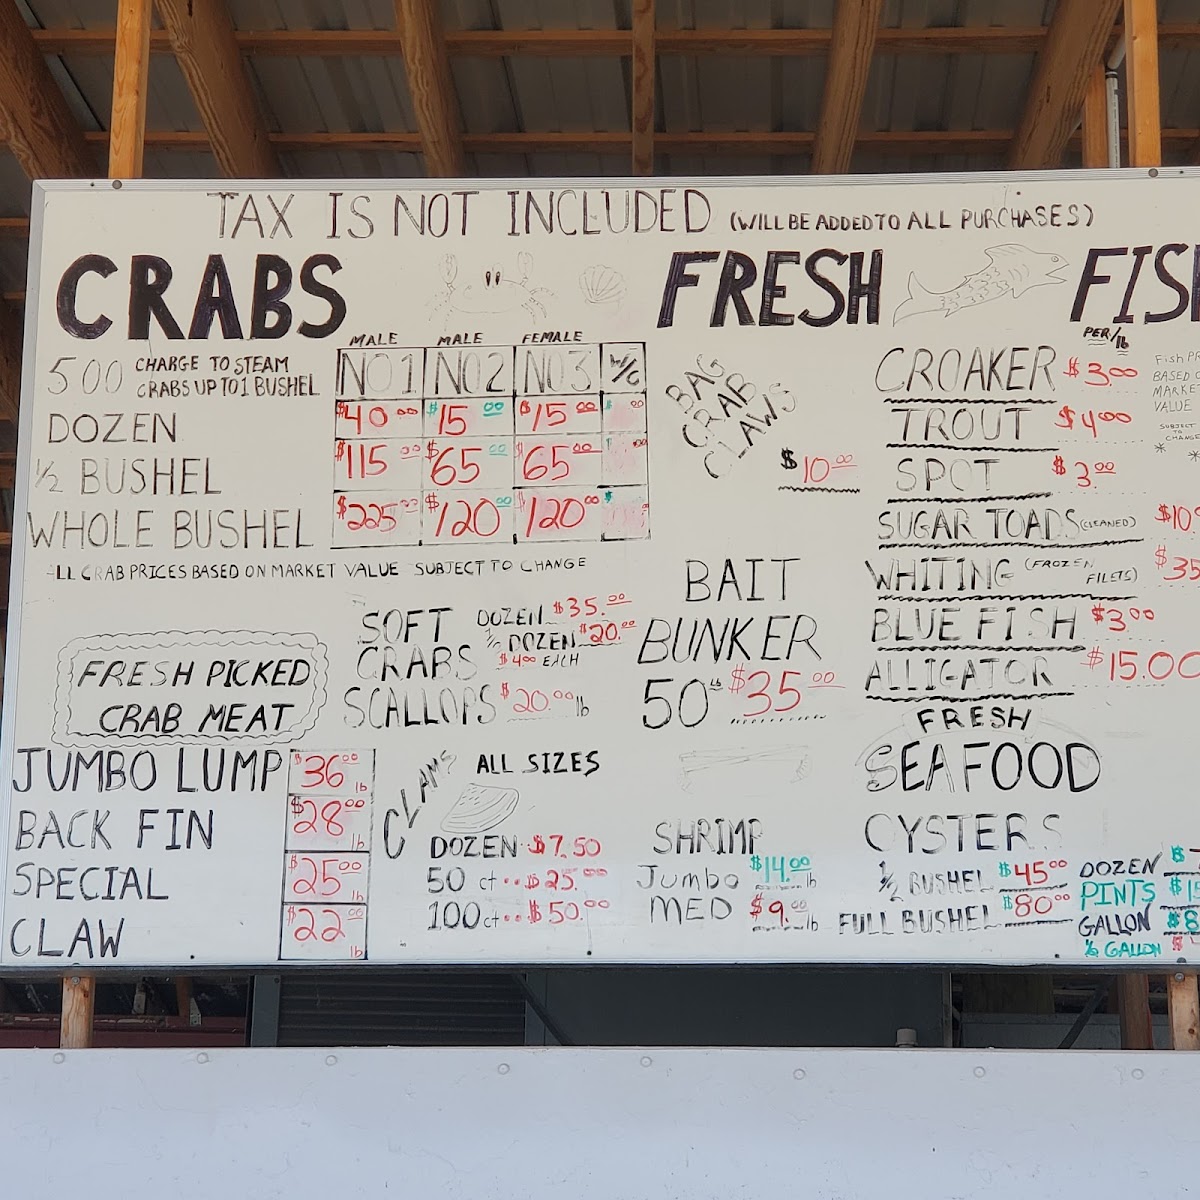 TAX IS NOT INCLUDED (WILL BE ADDED TO ALL PURCHASES)
CRABS
MALE MALE FEMALE
5 00 CHARGE TO STEAM
CRABS UP TO 1 BUSHEL
NO 1 NO 2 NO 3 W/C
DOZEN $40 00 $15 00 $15 00 $ 00
1/2 BUSHEL $115 00 $65 00 $65 00
WHOLE BUSHEL $225 00 $120 00 $120 00 $
LL CRAB PRICES BASED ON MARKET VALUE SUBJECT TO CHANGE
SOFT CRABS
DOZEN $35.00
1/2 DOZEN $20.00
$4 00 EACH
SCALLOPS $20.00 lb
FRESH PICKED
CRAB MEAT
JUMBO LUMP $36 00 lb
BACK FIN $28 00 lb
SPECIAL $25 00 lb
CLAW $22 00 lb
CLAMS
ALL SIZES
DOZEN $7.50
50 ct.. $25.00
100 ct... $50.00
BAG
CRAB
CLAWS
$10 00
BAIT
BUNKER
50 lb $35 00
SHRIMP
Jumbo $14.00 lb
MED $9.00 lb
FRESH FIS
PER/lb
CROAKER $3.00
TROUT $4.00
SPOT $3.00
SUGAR TOADS (CLEANED) $10
WHITING (FROZEN FILETS) $35
BLUE FISH $3.00
ALLIGATOR $15.00
Fish PR
BASED O
MARKE
VALUE
SUBJECT
TO
CHANGE
* *
FRESH
SEAFOOD
OYSTERS
1/2 BUSHEL $45 00
FULL BUSHEL $80 00
DOZEN $
PINTS $1
GALLON $8
1/2 GALLON $